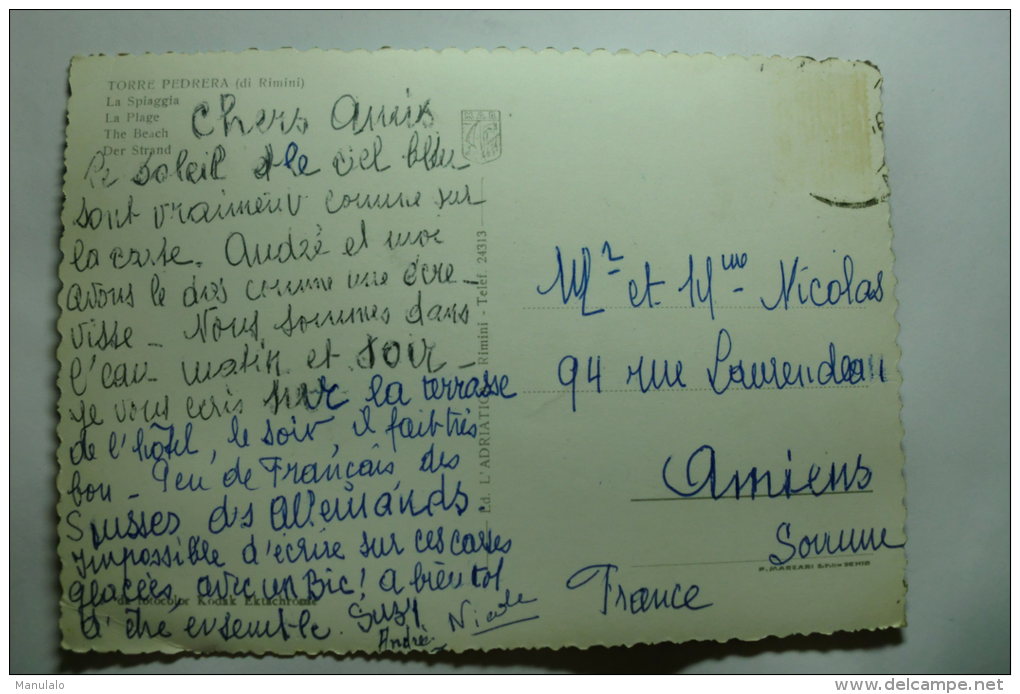 TORRE PEDRERA (di Rimini)
La Spiaggia
La Plage
The Beach
Der Strand
Chers Amis
Le soleil et le ciel bleu
sont vraiment comme sur
la carte. André et moi
avons le dos comme une écre-
visse - Nous sommes dans
l'eau matin et soir -
je vous ecris sur la terrasse
de l'hôtel, le soir, il fait très
bon - Peu de Français des
Suisses des Allemands.
Impossible d'écrire sur ces cartes
glacées, avec un Bic! a bientot
fotocolor Kodak Ektachrome
d'être ensemble. Suzy
André
Nicole
Ed. L'ADRIATICO Rimini - Telef. 24313
Mr et Mme Nicolas
94 rue Laurendeau
Amiens
Somme
France
Manulalo
http://www.delcampe.net